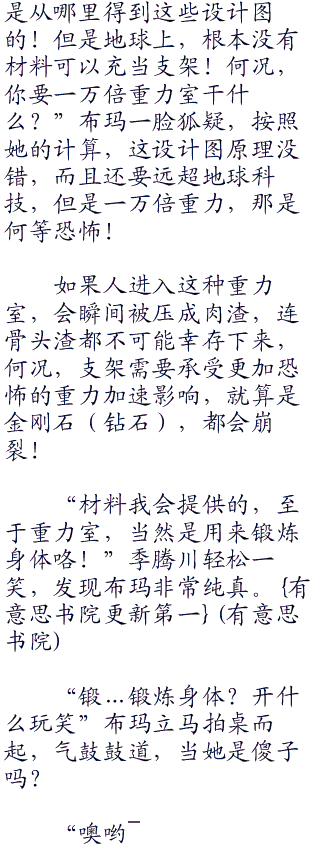 是从哪里得到这些设计图
的！但是地球上，根本没有
材料可以充当支架！何况，
你要一万倍重力室干什
么？”布玛一脸狐疑，按照
她的计算，这设计图原理没
错，而且还要远超地球科
技，但是一万倍重力，那是
何等恐怖！
如果人进入这种重力
室，会瞬间被压成肉渣，连
骨头渣都不可能幸存下来，
何况，支架需要承受更加恐
怖的重力加速影响，就算是
金刚石（钻石），都会崩
裂！
“材料我会提供的，至
于重力室，当然是用来锻炼
身体咯！”季腾川轻松一
笑，发现布玛非常纯真。{有
意思书院更新第一}(有意思
书院)
“锻...锻炼身体？开什
么玩笑”布玛立马拍桌而
起，气鼓鼓道，当她是傻子
吗？
“噢哟¯